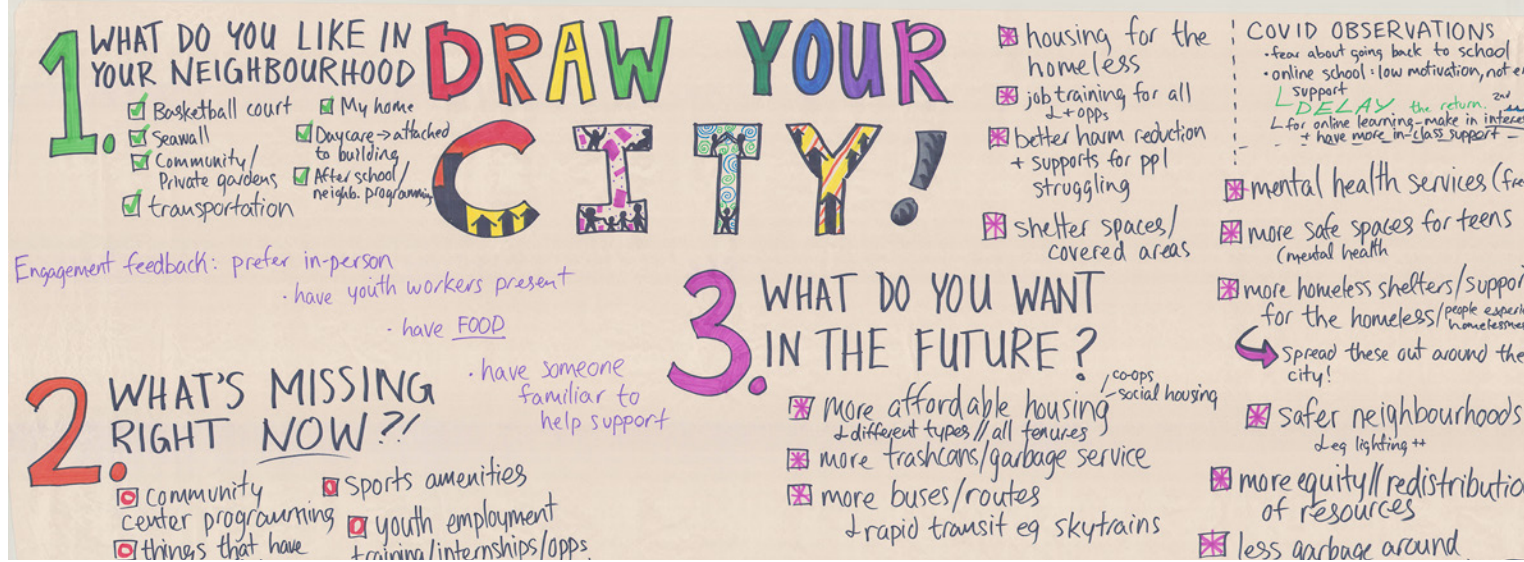 DRAW YOUR
CITY!
1. WHAT DO YOU LIKE IN
YOUR NEIGHBOURHOOD
Basketball court
Seawall
Community/
Private gardens
transportation
My home
Daycare → attached
to building
After school/
neighb. programming
Engagement feedback: prefer in-person
· have youth workers present
· have FOOD
· have someone
familiar to
help support
2. WHAT'S MISSING
RIGHT NOW?!
community
center programming
things that have
sports amenities
youth employment
training/internships/opps
3. WHAT DO YOU WANT
IN THE FUTURE?
more affordable housing
co-ops
social housing
↳ different types // all tenures
more trashcans/garbage service
more buses/routes
↳ rapid transit eg skytrains
housing for the
homeless
job training for all
↳ + opps
better harm reduction
+ supports for ppl
struggling
shelter spaces/
covered areas
COVID OBSERVATIONS
· fear about going back to school
· online school: low motivation, not
support
DELAY the return.
2nd
for online learning - make in
+ have more in-class support
mental health services
more safe spaces for teens
(mental health
more homeless shelters/
for the homeless/people
Spread these out around the
city!
safer neighbourhoods
↳ eg lighting ++
more equity//
of resources
less garbage around